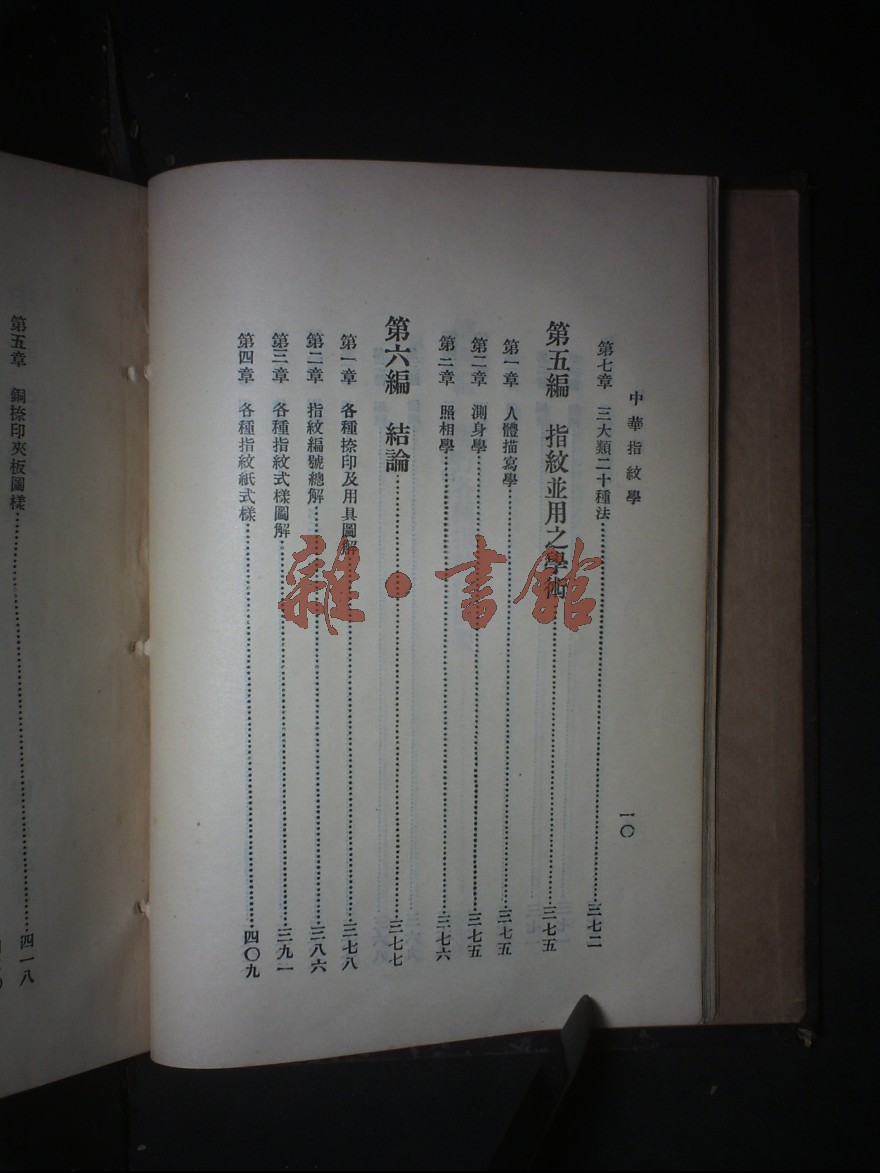 中華指紋學
一〇
第七章 三大類二十種法……三七二
第五編 指紋並用之學術……三七五
第一章 人體描寫學……三七五
第二章 測身學……三七五
第三章 照相學……三七六
第六編 結論……三七七
第一章 各種捺印及用具圖解……三七八
第二章 指紋編號總解……三八六
第三章 各種指紋式樣圖解……三九一
第四章 各種指紋紙式樣……四〇九
第五章 銅捺印夾板圖樣……四一八
雜·書館